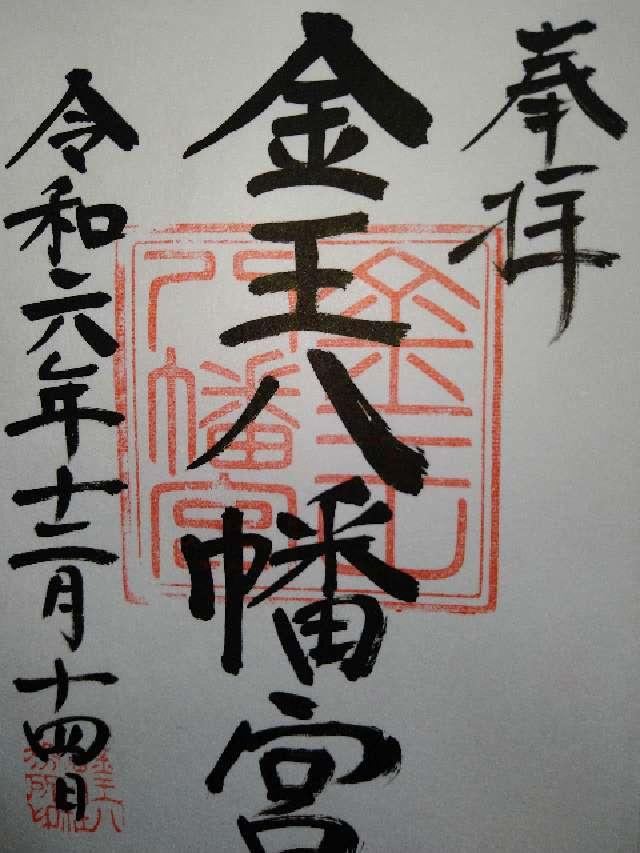 奉拝
金王八幡宮
令和六年十二月十四日
金王八幡宮